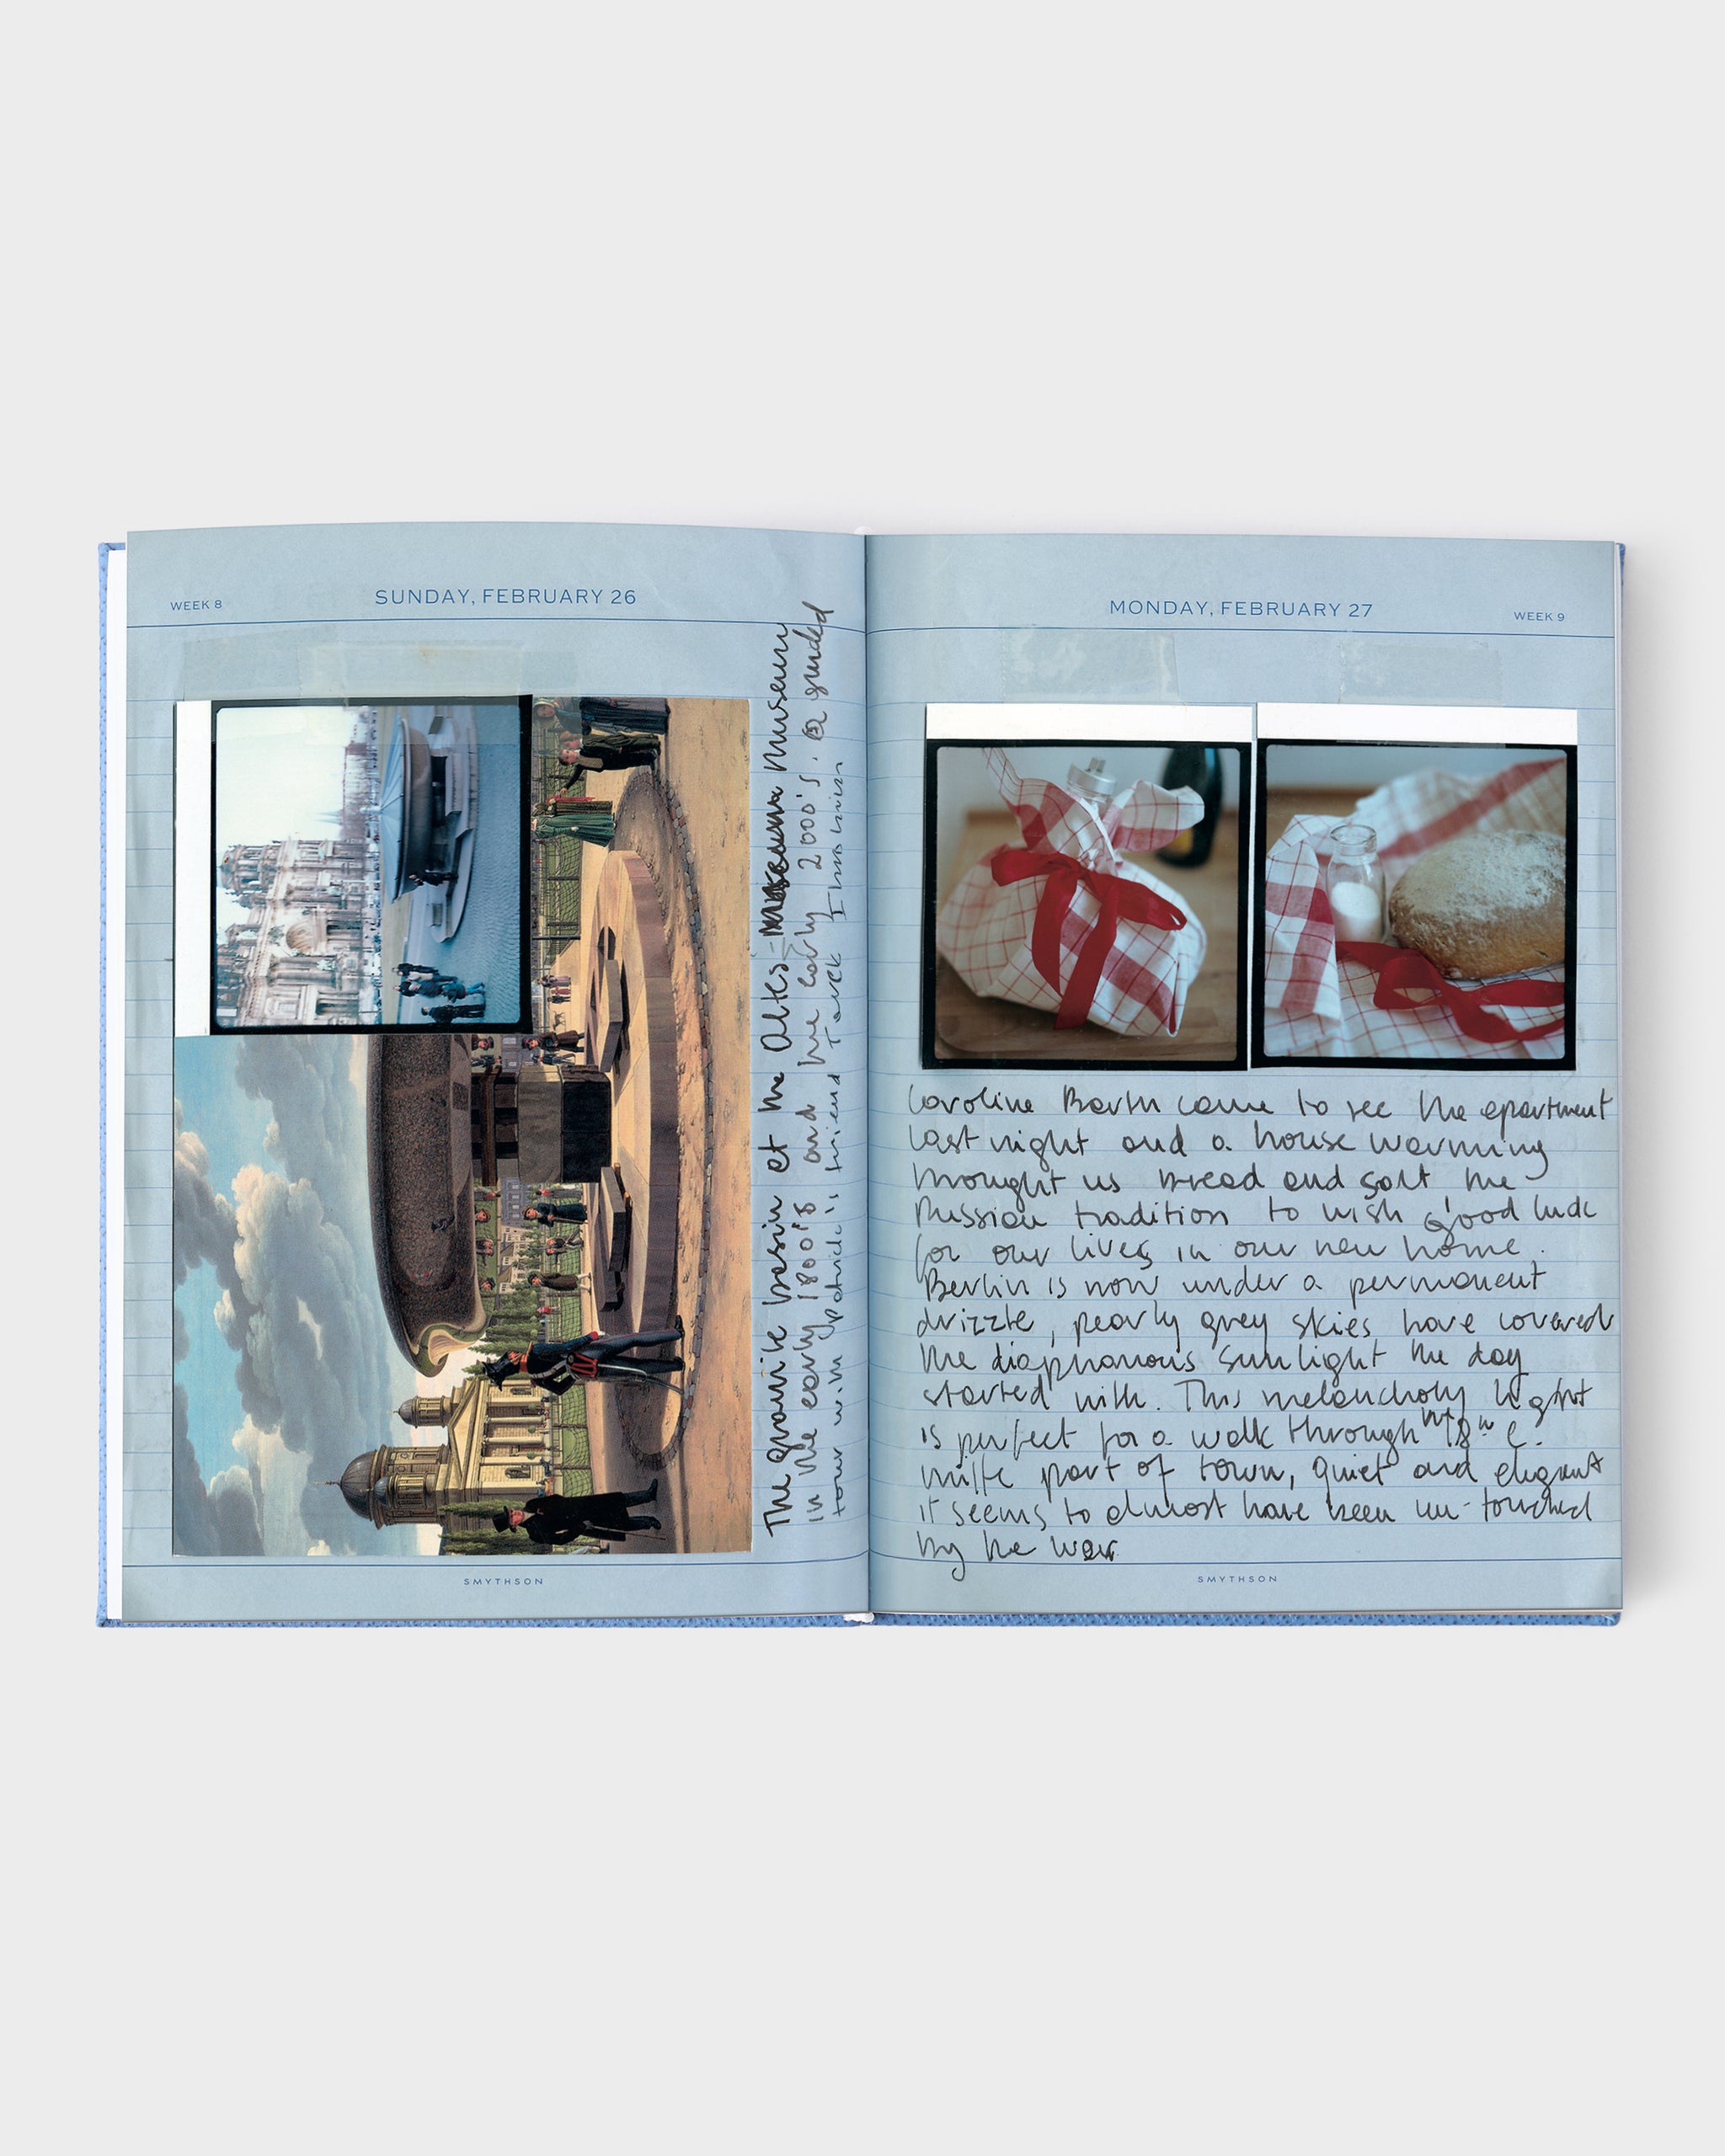 WEEK 8
SUNDAY, FEBRUARY 26
The granite basin at the Altes Museum
in the early 1800's and the early 2000's. a guided
tour with Patrick's friend Tarek
SMYTHSON
MONDAY, FEBRUARY 27
WEEK 9
Caroline Barth came to see the apartment
last night and a house warming
brought us bread and salt the
Russian tradition to wish good luck
for our lives in our new home.
Berlin is now under a permanent
drizzle, pearly grey skies have covered
the diaphanous sunlight the day
started with. This melancholy light
is perfect for a walk through
mitte part of town, quiet and elegant
it seems to almost have been un-touched
by the war
SMYTHSON